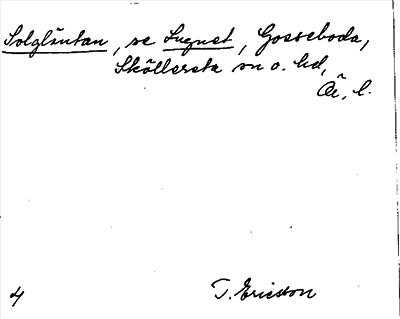 Solgläntan, se Lugnet, Gosseboda,
Sköllersta sn o. hd,
Ör. l.
4 T. Ericsson